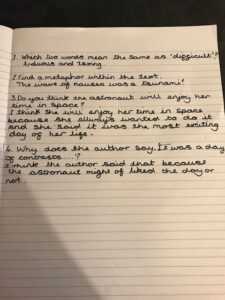 1. Which two words mean the same as 'difficult'?
Arduous and taxing
2. Find a metaphor within the text.
The wave of nausea was a tsunami!
3. Do you think the astronaut will enjoy her
time in space?
I think she will enjoy her time in space
because she always wanted to do it
and she said it was the most exciting
day of her life.
4. Why does the author say, It was a day
of contrasts....?
I think the author said that because
the astronaut might of liked the day or
not.